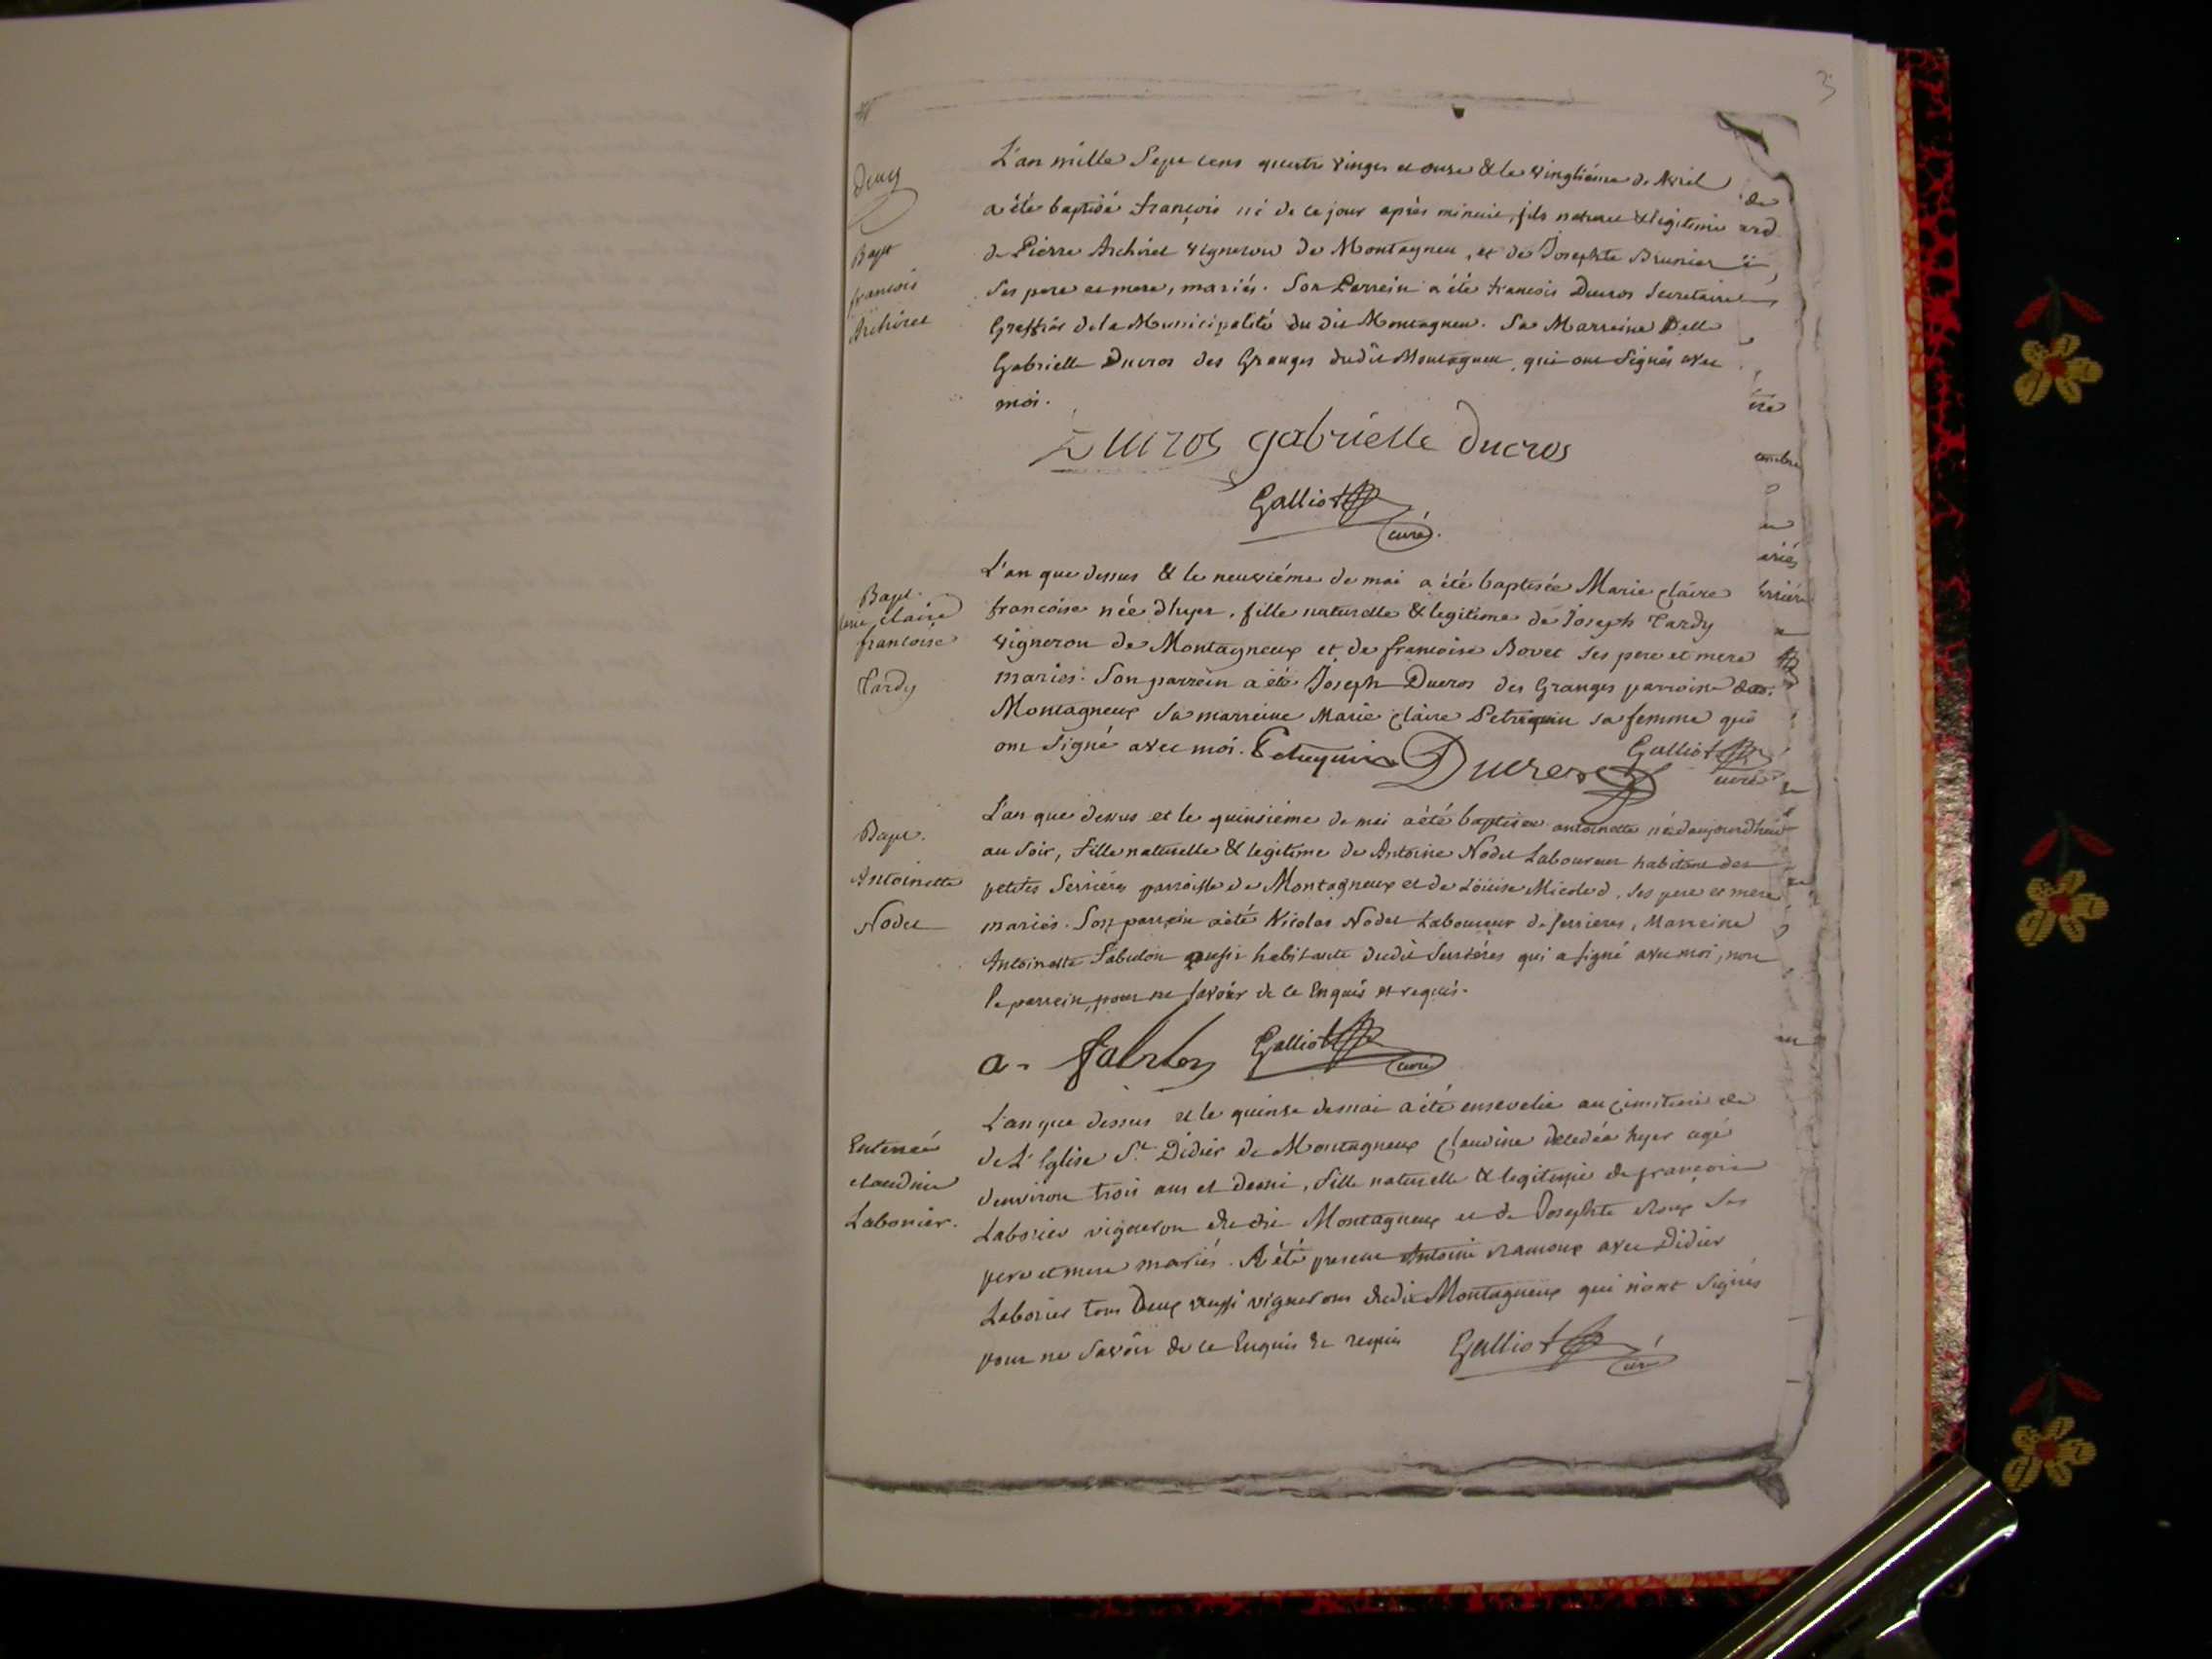 3
L'an mille Sept cens quatre vingts et onze & le vingtiéme de Avril
a été baptisé françois né de ce jour après minuit, fils naturel & legitime
de Pierre Archiret vigneron de Montagneu, et de Josephte Brunier
Bapt
françois
Archiret
Ses pere et mere, mariés. Son Parrein a été francois Ducros Secretaire
Greffier de la Municipalité du dit Montagneu. Sa Marreine Delle
Gabrielle Ducros des Granges dudit Montagneu, qui ont Signés avec
moi.
Ducros gabrielle ducros
Galliot
curé.
L'an que dessus & le neuviéme de mai a été baptisée Marie claire
Bapt.
claire
francoise
Tardy
francoise née d'hyer, fille naturelle & legitime de Joseph Tardy
vigneron de Montagneux et de francoise Bovet ses pere et mere
mariés. Son parrein a été Joseph Ducros des Granges parroisse de
Montagneux sa marreine Marie claire Petrequin sa femme qui
ont signé avec moi. Petrequin Ducros Galliot
curé
L'an que dessus et le quinsiéme de mai a été baptisée antoinette née d'aujourdhui
Bapt.
Antoinette
Nodet
au soir, fille naturelle & legitime de Antoine Nodet Laboureur habitant des
petites Serriéres parroisse de Montagneux et de Loüise Micoled, ses pere et mere
mariés. Son parrein a été Nicolas Nodet Laboureur de serrieres, Marreine
Antoinette Sabulon aussi habitante dudit Serriéres qui a signé avec moi, non
le parrein, pour ne savoir de ce Enquis et requis.
a. Galliot
curé
L'an que dessus et le quinse de mai a été ensevelie au cimitiere de
Enterrée
claudine
Laborier.
de L'Eglise St. Didier de Montagneux claudine decedée hyer agé
d'environ trois ans et demi, fille naturelle & legitime de françois
Laborier vigneron dudit Montagneux et de Josephte Roux ses
pere et mere mariés. A été present Antoine Ramoux avec Didier
Laborier tous Deux aussi vignerons dudit Montagneux qui n'ont signés
pour ne savoir de ce Enquis & requis Galliot
curé